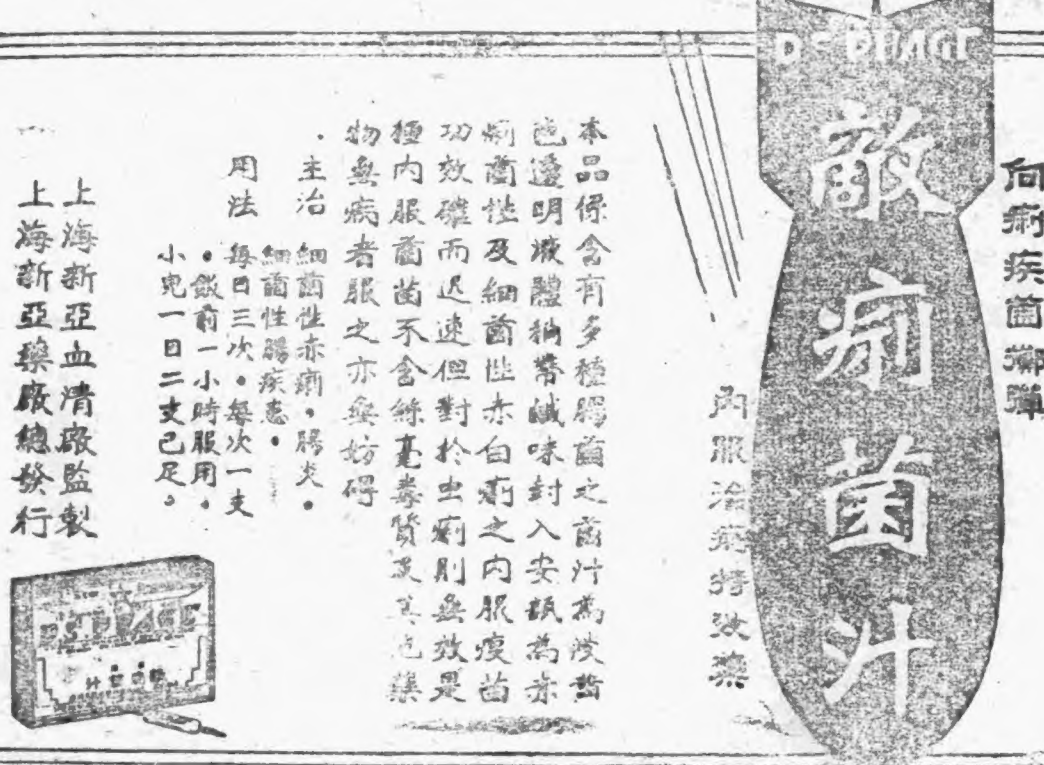 向痢疾菌擲彈
敵痢菌汁
內服治痢特效藥
本品係含有多種腸菌之菌汁為淡黃
色透明液體稍帶鹹味封入安瓿為赤
痢菌性及細菌性赤白痢之內服疫苗
功效確而迅速但對於虫痢則無效是
種內服菌苗不含絲毫毒質及其他藥
物無病者服之亦無妨碍
主治 細菌性赤痢，腸炎。
細菌性腸疾患。
用法 每日三次。每次一支
。飯前一小時服用。
小兒一日二支已足。
上海新亞血清廠監製
上海新亞藥廠總發行